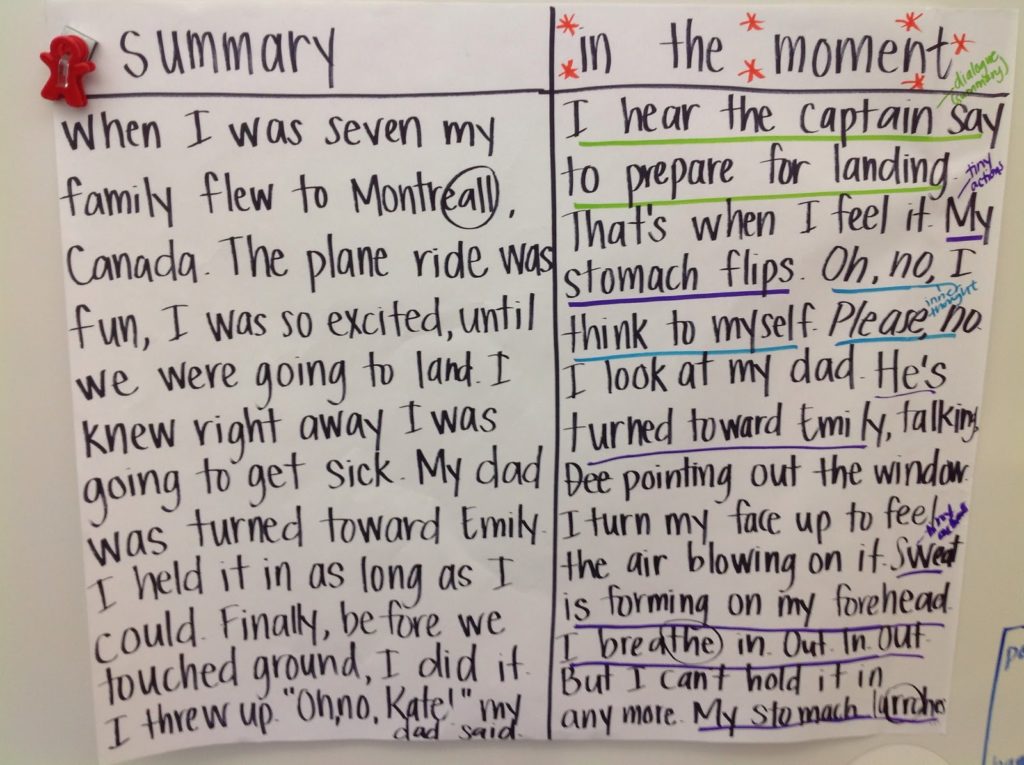 Summary
When I was seven my
family flew to Montreall,
Canada. The plane ride was
fun, I was so excited, until
we were going to land. I
knew right away I was
going to get sick. My dad
was turned toward Emily.
I held it in as long as I
could. Finally, before we
touched ground, I did it.
I threw up. "Oh, no, Kate!" my
dad said.
in the moment
dialogue
(summary)
I hear the captain say
to prepare for landing.
tiny
actions
That's when I feel it. My
stomach flips. Oh, no, I
inner
thought
think to myself. Please, no.
I look at my dad. He's
turned toward Emily, talking,
Dee pointing out the window.
I turn my face up to feel
tiny
the air blowing on it. Sweat
is forming on my forehead.
I breathe in. Out. In. Out.
But I can't hold it in
any more. My stomach lurrches